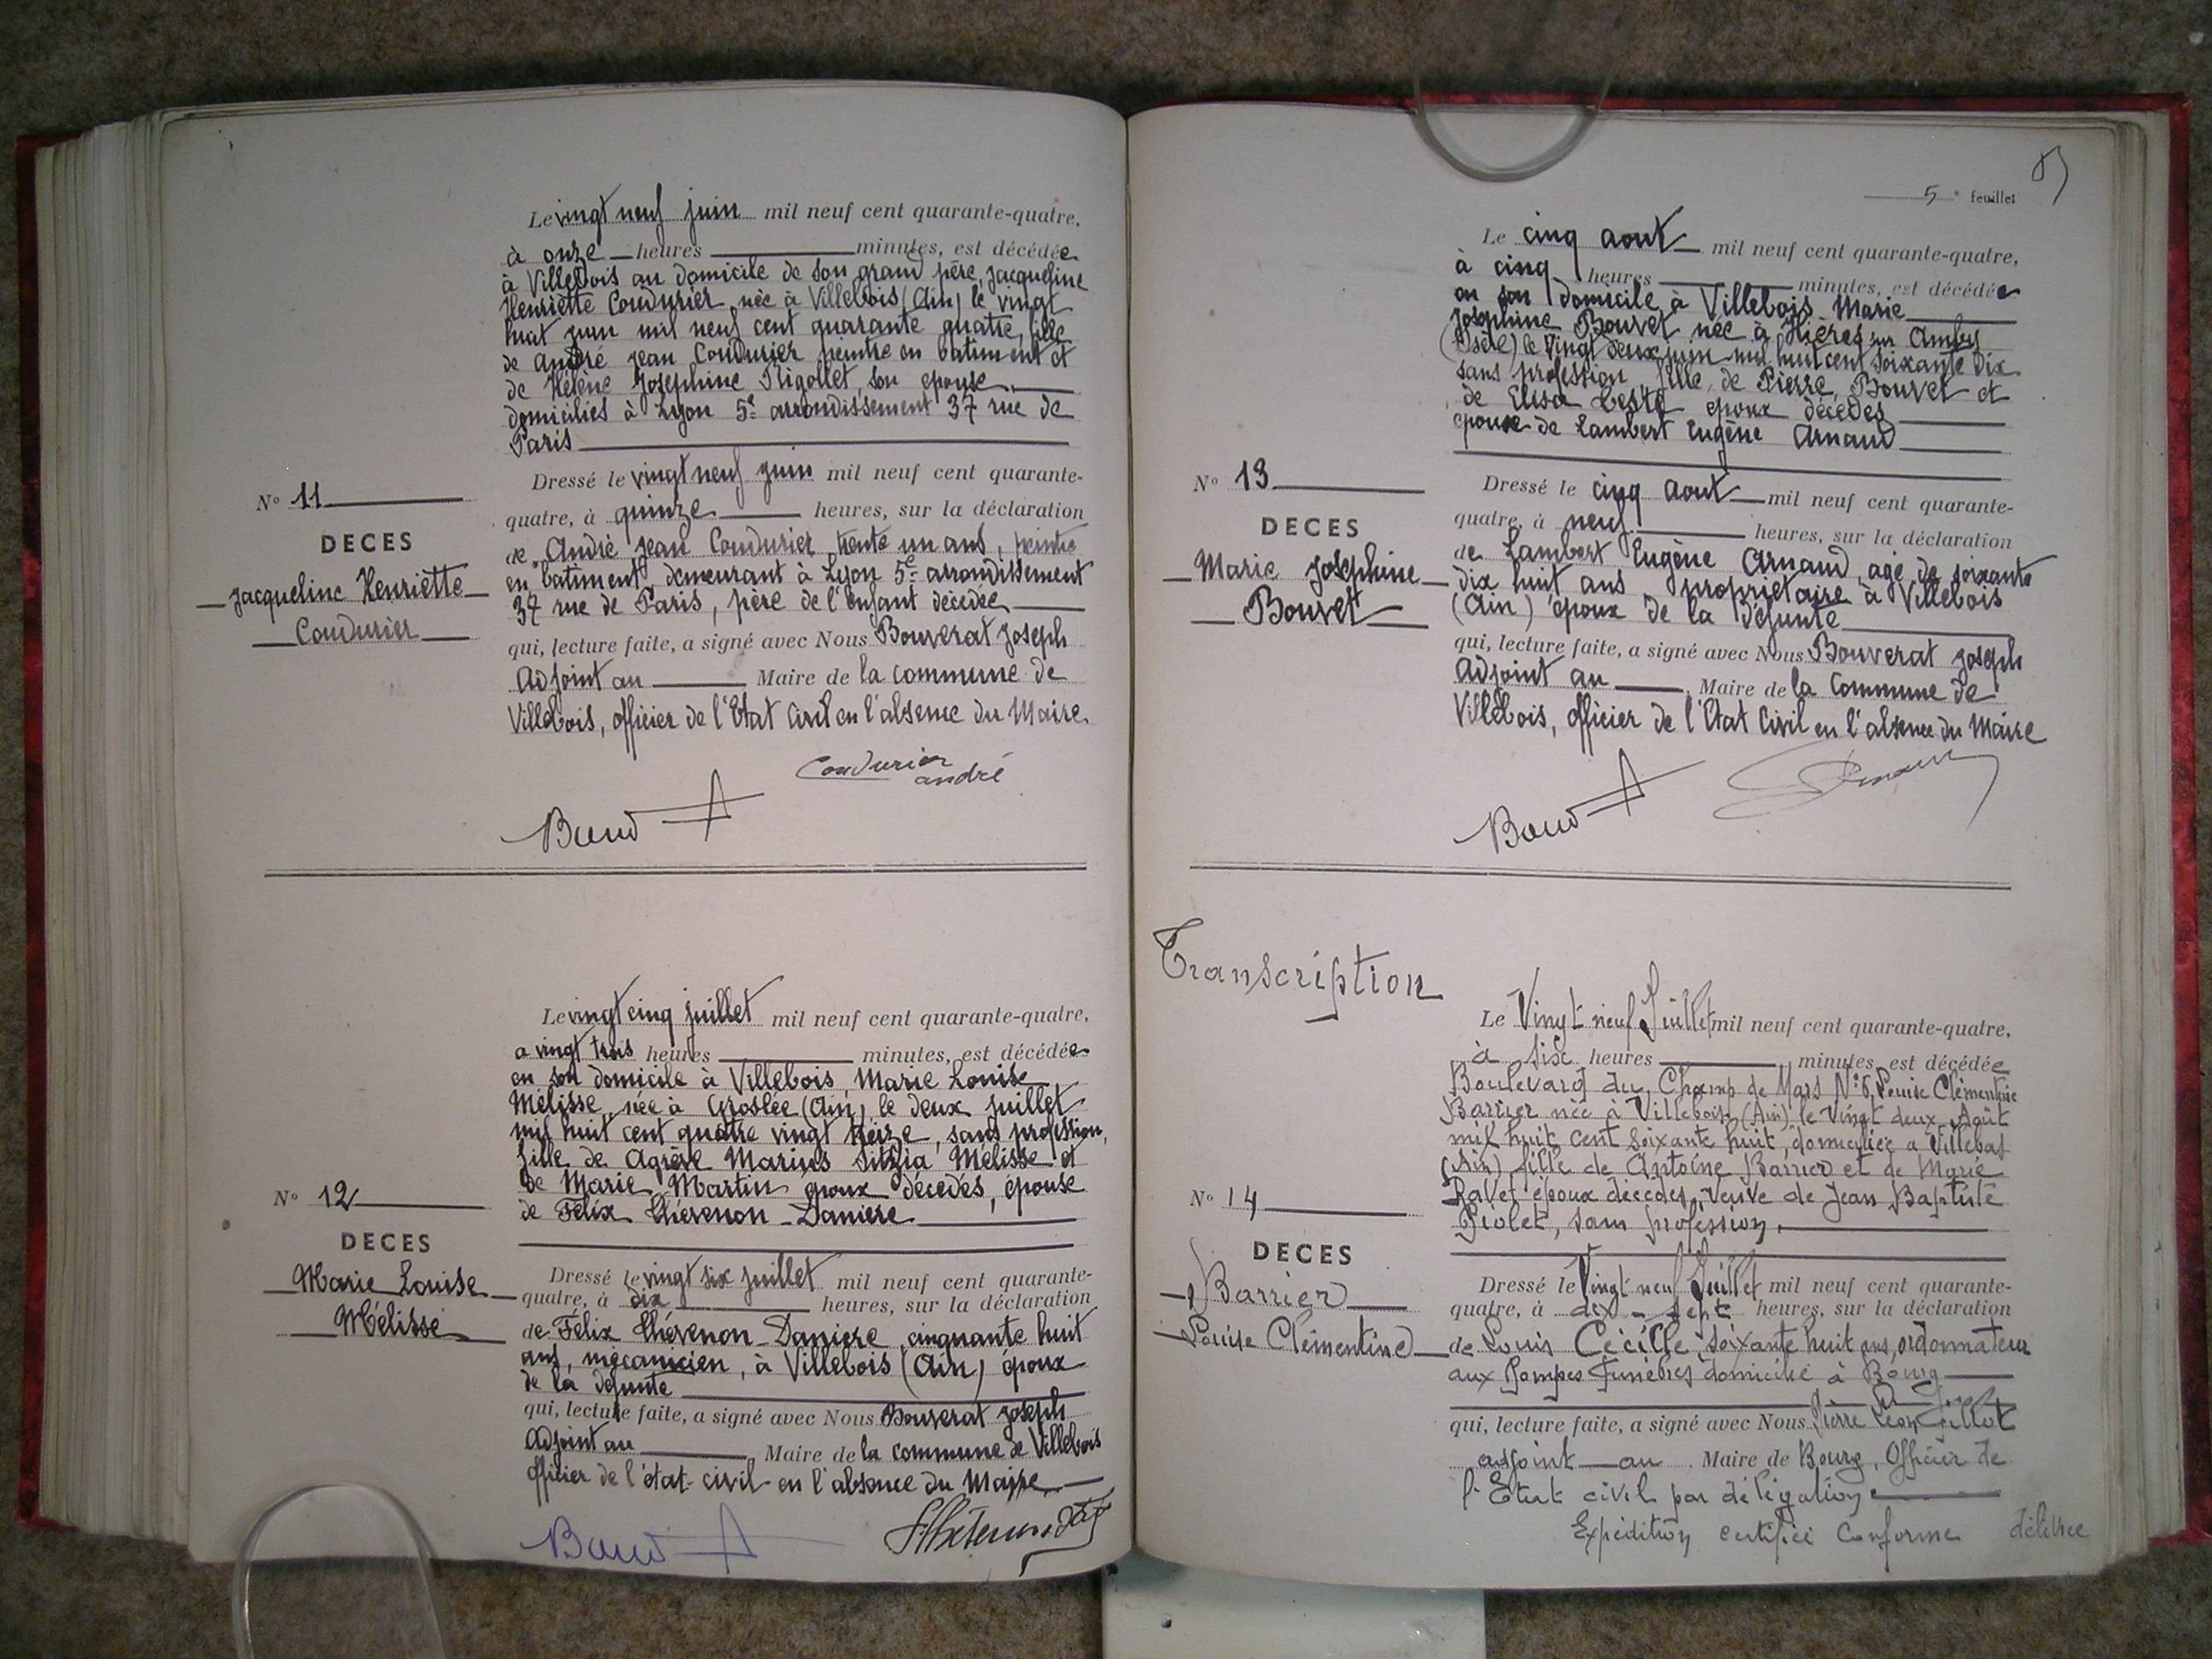 Le vingt neuf juin mil neuf cent quarante-quatre,
à onze heures minutes, est décédée
à Villebois au domicile de son grand père, Jacqueline
Henriette Coudurier née à Villebois (Ain) le vingt
huit juin mil neuf cent quarante quatre, fille
de André Jean Coudurier peintre en batiment et
de Hélène Joséphine Rigollet, son epouse
domiciliés à Lyon 5e arrondissement 37 rue de
Paris
Nº 11
DECES
Jacqueline Henriette
Coudurier
Dressé le vingt neuf juin mil neuf cent quarante-
quatre, à quinze heures, sur la déclaration
de André Jean Coudurier, trente un ans, peintre
en batiment demeurant à Lyon 5e arrondissement
37 rue de Paris, père de l'enfant décédée
qui, lecture faite, a signé avec Nous Bouverat Joseph
Adjoint au Maire de la commune de
Villebois, officier de l'Etat Civil en l'absence du Maire.
Coudurier
andré
Le vingt cinq juillet mil neuf cent quarante-quatre,
a vingt trois heures minutes, est décédée
en son domicile à Villebois, Marie Louise
Mélisse, née à Groslée (Ain), le deux juillet
mil huit cent quatre vingt treize, sans profession,
fille de Agrève Marius Mélisse et
de Marie Martin époux décédés, épouse
de Félix Chévenon-Daniere
Nº 12
DECES
Marie Louise
Mélisse
Dressé le vingt six juillet mil neuf cent quarante-
quatre, à dix heures, sur la déclaration
de Félix Chévenon-Daniere, cinquante huit
ans, mécanicien, à Villebois (Ain) époux
de la defunte
qui, lecture faite, a signé avec Nous Bouverat Joseph
Adjoint au Maire de la commune de Villebois
officier de l'état-civil en l'absence du Maire
5e feuillet
Le cinq aout mil neuf cent quarante-quatre,
à cinq heures minutes, est décédée
en son domicile à Villebois Marie
Joséphine Bouvet née à Hières sur Amby
(Isère) le vingt deux juin mil huit cent soixante dix
sans profession fille de Pierre Bouvet et
de Elisa époux décédés
épouse de Lambert Eugène Arnaud
Nº 13
DECES
Marie Joséphine
Bouvet
Dressé le cinq aout mil neuf cent quarante-
quatre, à neuf heures, sur la déclaration
de Lambert Eugène Arnaud, agé de soixante
dix huit ans propriétaire à Villebois
(Ain) époux de la défunte
qui, lecture faite, a signé avec Nous Bouverat Joseph
Adjoint au Maire de la Commune de
Villebois, officier de l'Etat Civil en l'absence du Maire
Transcription
Le Vingt neuf Juillet mil neuf cent quarante-quatre,
à six heures minutes, est décédée
Boulevard du Champ de Mars Nº 5, Louise Clémentine
Barrier née à Villebois (Ain) le Vingt deux Août
mil huit cent soixante huit, domiciliée a Villebois
(Ain) fille de Antoine Barrier et de Marie
Ravet époux décédés, Veuve de Jean Baptiste
Piolet, sans profession.
Nº 14
DECES
Barrier
Louise Clémentine
Dressé le Vingt neuf Juillet mil neuf cent quarante-
quatre, à dix-sept heures, sur la déclaration
de Louis Cécille, soixante huit ans, ordonnateur
aux Pompes Funèbres domicilié à Bourg
qui, lecture faite, a signé avec Nous Pierre Léon Gillot
adjoint au Maire de Bourg, Officier de
l'Etat civil par délégation
Expédition certifiée Conforme délivrée